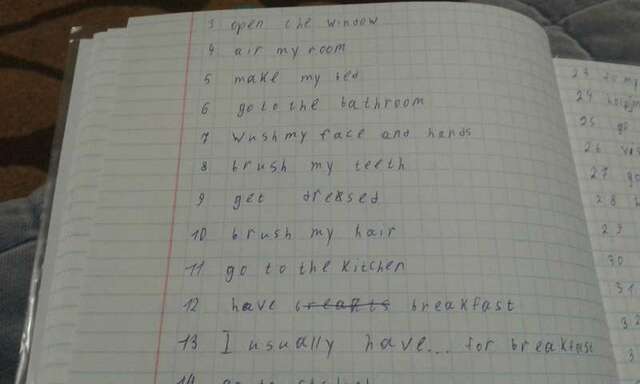 3 open the window
4 air my room
5 make my bed
6 go to the bathroom
7 wush my face and hands
8 brush my teeth
9 get dressed
10 brush my hair
11 go to the kitchen
12 have breakfast
13 I usually have... for breakfast
14 go to school
23
24
25 go
26
27 go
28
29
30
31